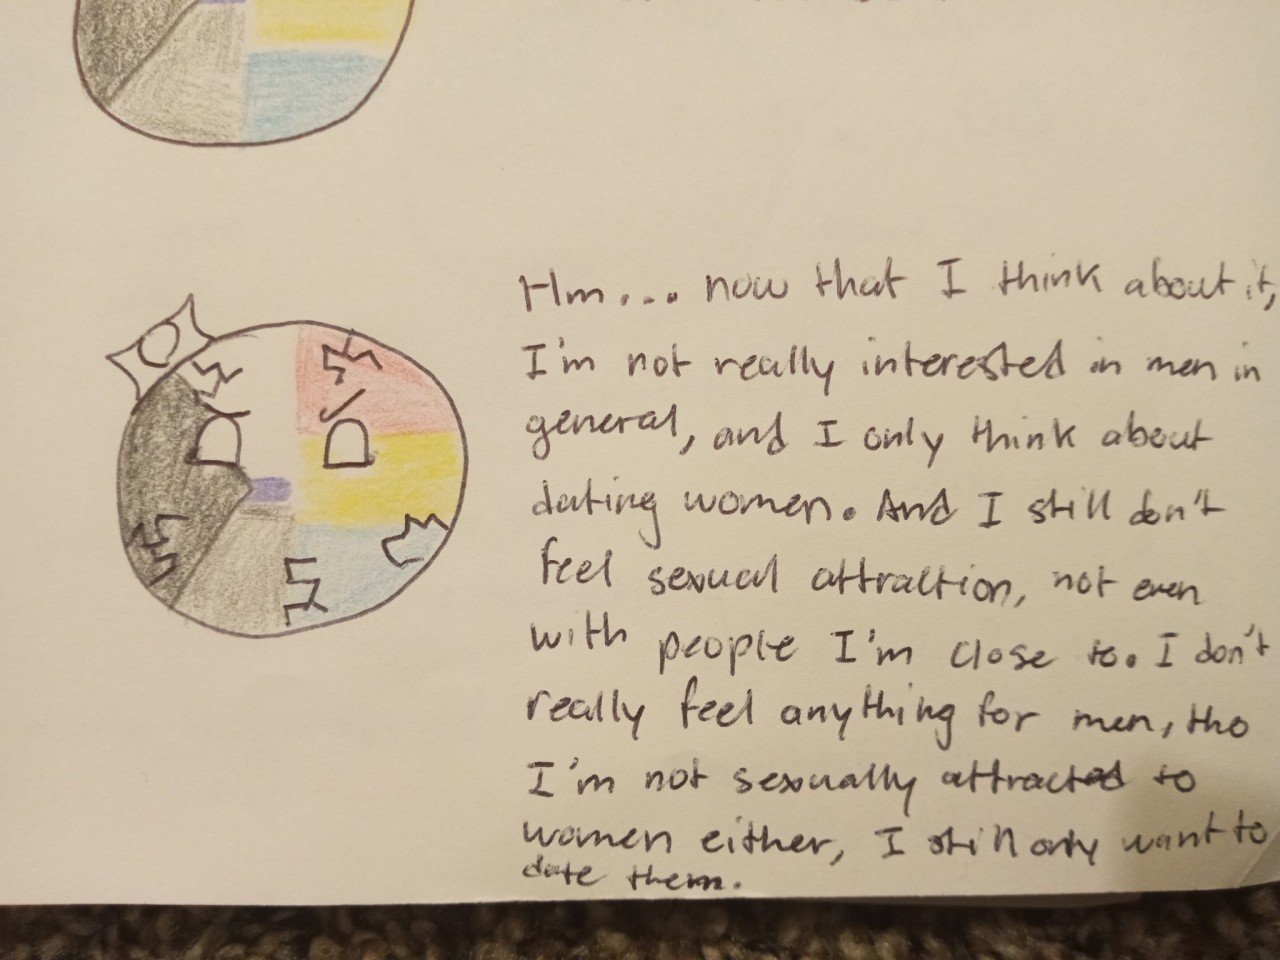 Hm... now that I think about it,
I'm not really interested in men in
general, and I only think about
dating women. And I still don't
feel sexual attraction, not even
with people I'm close to. I don't
really feel anything for men, tho
I'm not sexually attracted to
women either, I still only want to
date them.